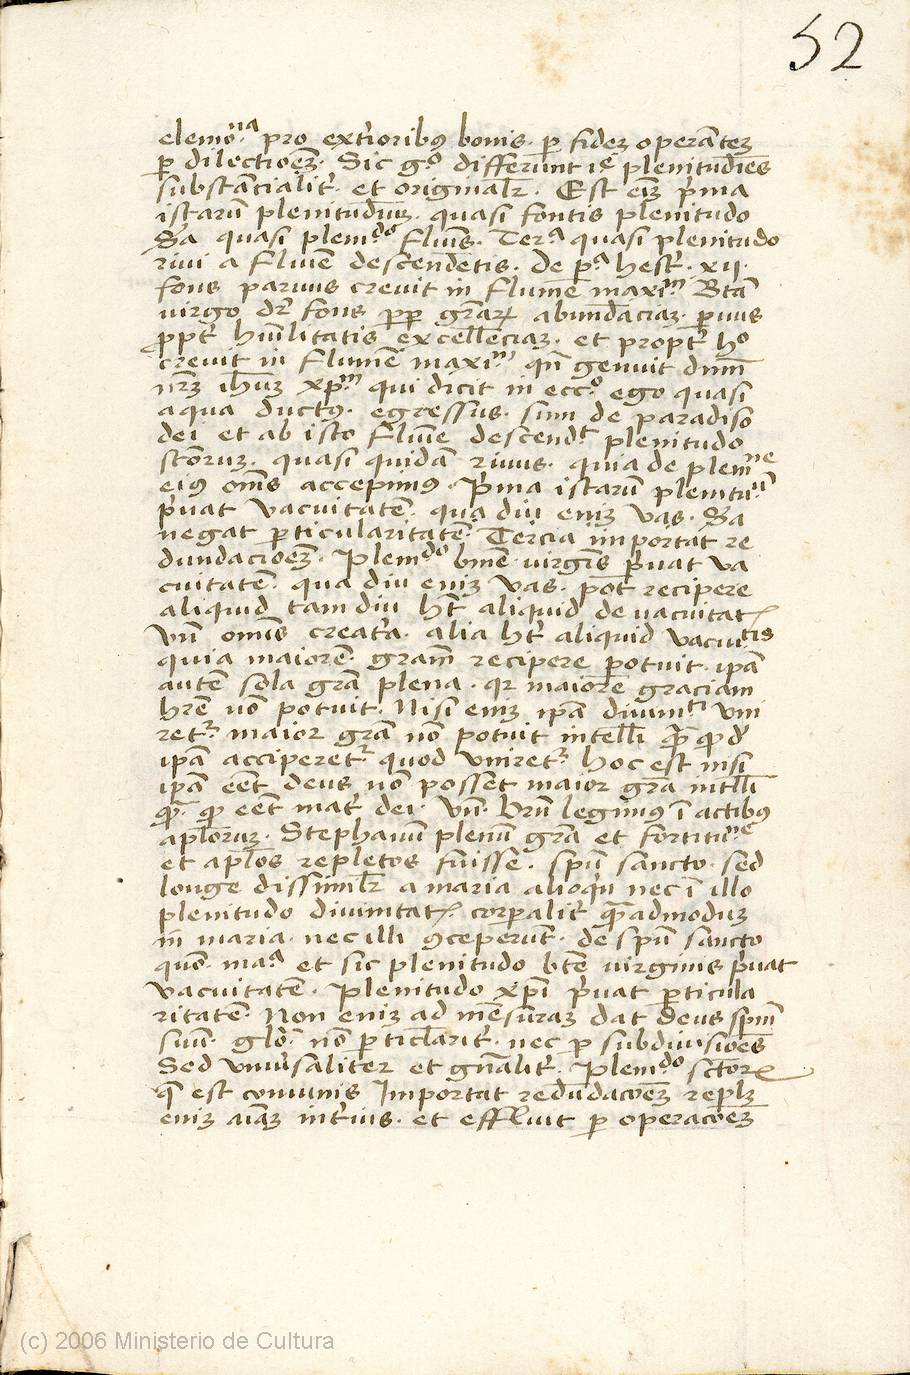 52
elemoīa pro ext̄ioribꝰ bonis · ꝑ fideʒ operāteʒ
ꝑ dilectioēʒ · Sic gº differūnt ꝑ plenitudīes
substācialit̄ · et originalr̄ · Est eīʒ p̄ma
istarū plenitudinuʒ · quasi fontis plenitudo
Sā quasi plemdº fluīs · Terª quasi plenitudo
rivi a fluīe descendētis · de pª hest̄ · xij ·
fons parvus crevit in flumē maxīm Btā
virgo dr̄ fons ꝓp grāꝝ abundāciaʒ · ꝑvus
ꝓpt̄ hūilitatis excellēciaʒ · et propt̄ hº
crevit in flumē maxīm qn̄ genuit dnm̄
nr̄ʒ ihūʒ xp̄m qui dicit in eccº · ego quasi
aqua ductꝰ · egressus · sum de paradiso
dei et ab isto fluīe descendt̄ plenitudo
sctōruʒ · quasi quidā rivus · quia de plemne
eiꝰ om̄s accepimꝰ · p̄ma istarū plenituū
p̄vat vacuitatē · qua diu eniʒ vas · Sā
negat ꝑticularitatē · Tercia importat re
dundacioēʒ · Plemdº btē virgīs p̄vat va
cuitatē · qua diu eniʒ vas · pot̄ recipere
aliquid tam diu ht̄ aliquid de vacuitatꝭ
vn̄ omīs creat̄a · alia ht̄ aliquid vacuitis
quia maiorē · gram̄ recipere potuit · ipā
autē sola grā plena · qr maiorē graciam
hr̄e nō potuit · Nisi eniʒ ipā divinitī uni
ret̄ · maior grā nō potuit intelli q̄ qd̄
ipā acciperet̄ quod uniret̄ · hoc est nisi
ipā eēt deus nō posset maior grā intlli
q̄ · qd̄ eēt mat̄ dei · vn̄ · bn̄ legimꝰ ī actibꝰ
aplōruʒ · Stephanū plenū grā et fortitune
et aplōs repletos fuisse · spū sancto · sed
longe dissimilr̄ a maria alioqn̄ nec ī illo
plenitudo divinitatꝭ · corꝑalit̄ quēadmoduʒ
in maria · nec illi ꝯceperūt · de spū sancto
quē · maª et sic plenitudo btē virginis p̄vat
vacuitatē · Plenitudo xp̄i p̄vat ꝑticula
ritatē · Non eniʒ ad mēsuraʒ dat deus spm̄
suū · glō · nō ꝑticlarit̄ · nec ꝑ subdivisiōes
Sed univ̄saliter et gn̄alit̄ · Plemdº sctōrꝝ
q̄ est comunis Importat redūdacōeʒ replʒ
eniʒ aīaʒ int̄ius · et effluit ꝑ operacōeʒ
(c) 2006 Ministerio de Cultura